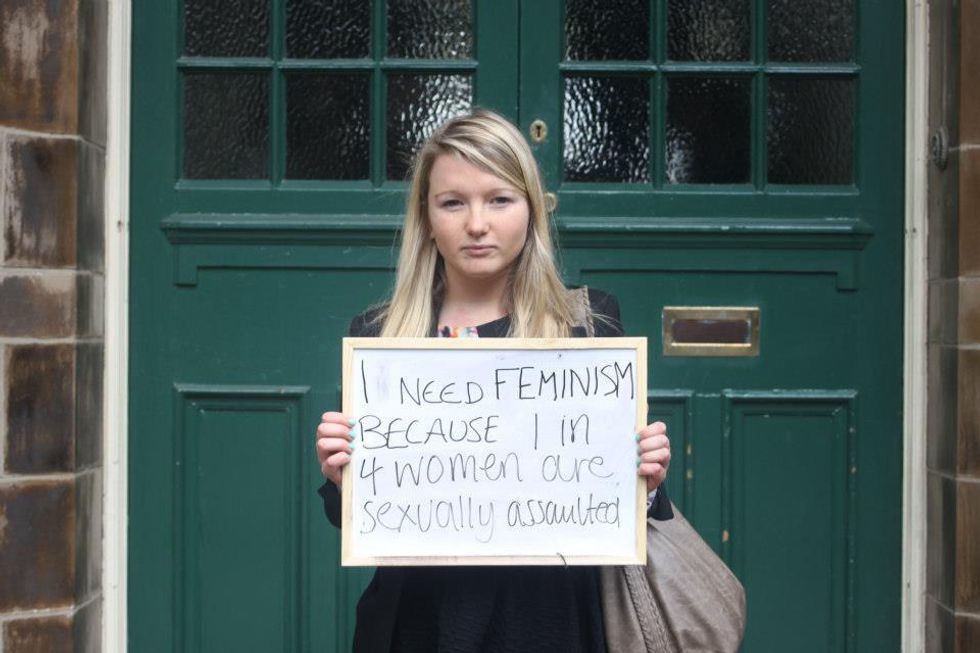 I NEED FEMINISM
BECAUSE 1 in
4 women are
sexually assaulted